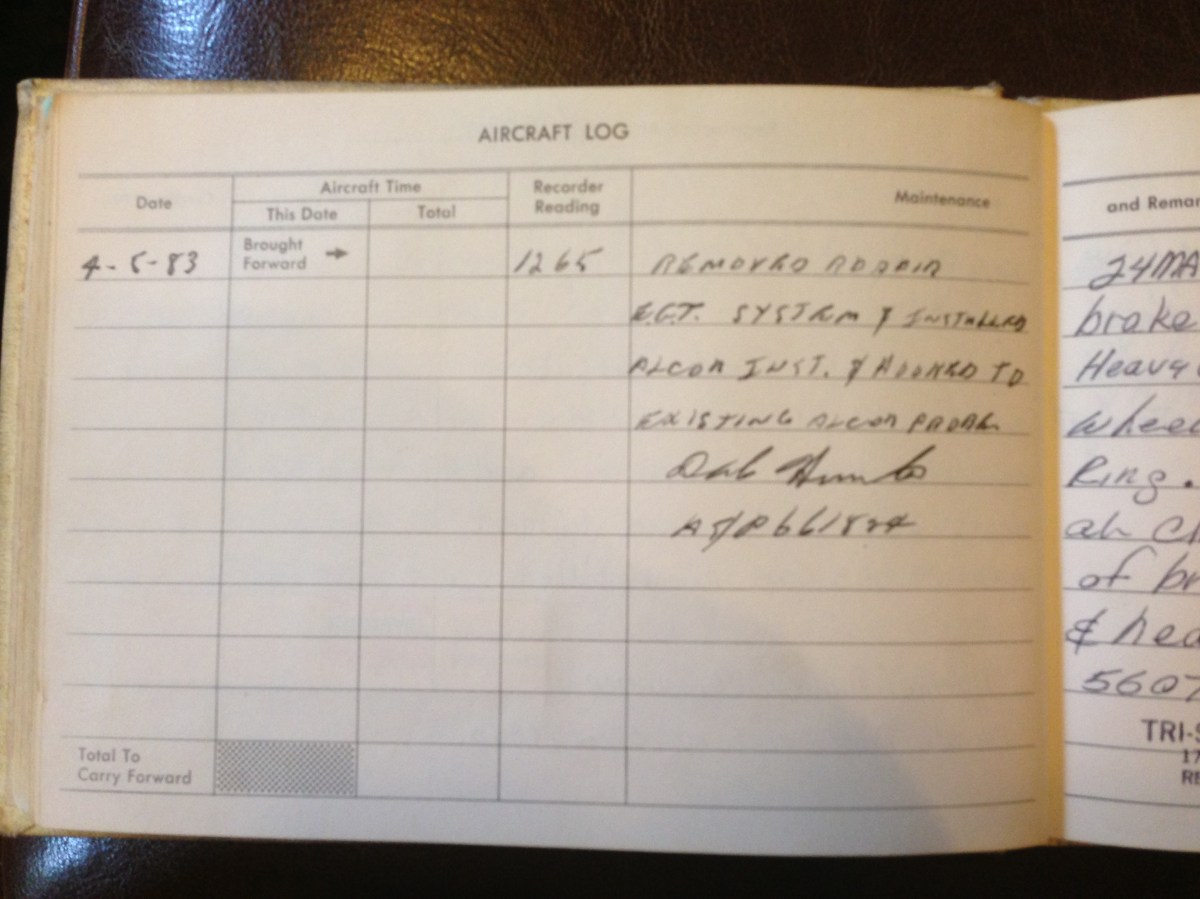 AIRCRAFT LOG
Date
Aircraft Time
This Date
Total
Recorder
Reading
Maintenance
4-5-83
Brought
Forward
1265
REMOVED
E.G.T. SYSTEM & INSTALLED
ALCOR INST. & HOOKED TO
EXISTING ALCOR PROBE
Total To
Carry Forward
and Remar
24MA
brake
Heavy
whee
Ring.
of br
& hea
5607
TRI-S
17
RE